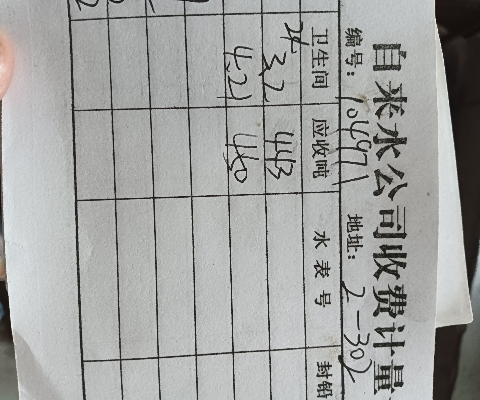 自来水公司收费计量
编号：10497 地址：2-302
卫生间 应收吨 水表号 封铅
24 3.2 443
4.21 450